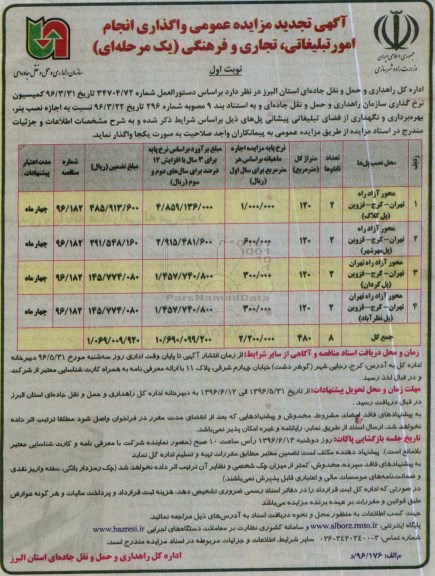 آگهی تجدید مزایده عمومی واگذاری انجام
امور تبلیغاتی، تجاری و فرهنگی (یک مرحله‌ای)
نوبت اول
جمهوری اسلامی ایران
وزارت راه و شهرسازی
سازمان راهداری و حمل و نقل جاده‌ای
اداره کل راهداری و حمل و نقل جاده‌ای استان البرز در نظر دارد براساس دستورالعمل شماره ۳۴۷۰۴/۷۲ تاریخ ۹۶/۳/۳۱ کمیسیون
نرخ گذاری سازمان راهداری و حمل و نقل جاده‌ای و به استناد بند ۹ مصوبه شماره ۲۹۶ تاریخ ۹۶/۳/۲۲ نسبت به اجازه نصب بنر،
بهره‌برداری و نگهداری از فضای تبلیغاتی پیشانی پل‌های ذیل براساس شرایط ذکر شده و به شرح مشخصات اطلاعات و جزئیات
مندرج در اسناد مزایده از طریق مزایده عمومی به پیمانکاران واجد صلاحیت به صورت یکجا واگذار نماید.
ردیف | محل نصب پل‌ها | تعداد تابلوها | متراژ کل (مترمربع) | نرخ پایه مزایده اجاره ماهیانه براساس هر مترمربع برای سال اول (ریال) | مبلغ برآورد براساس نرخ پایه برای ۳ سال با افزایش ۱۲ درصد برای سال‌های دوم و سوم (ریال) | مبلغ تضمین (ریال) | شماره مناقصه | مدت اعتبار پیشنهادات
۱ | محور آزاد راه تهران-کرج-قزوین (پل کلاک) | ۲ | ۱۲۰ | ۱/۰۰۰/۰۰۰ | ۴/۸۵۹/۱۳۶/۰۰۰ | ۴۸۵/۹۱۳/۶۰۰ | ۹۶/۱۸۲ | چهار ماه
۲ | محور آزاد راه تهران-کرج-قزوین (پل مهرشهر) | ۲ | ۱۲۰ | ۶۰۰/۰۰۰ | ۲/۹۱۵/۴۸۱/۶۰۰ | ۲۹۱/۵۴۸/۱۶۰ | ۹۶/۱۸۲ | چهار ماه
۳ | محور آزاد راه تهران-کرج-قزوین (پل کردان) | ۲ | ۱۲۰ | ۳۰۰/۰۰۰ | ۱/۴۵۷/۷۴۰/۸۰۰ | ۱۴۵/۷۷۴/۰۸۰ | ۹۶/۱۸۲ | چهار ماه
۴ | محور آزاد راه تهران-کرج-قزوین (پل نظرآباد) | ۲ | ۱۲۰ | ۳۰۰/۰۰۰ | ۱/۴۵۷/۷۴۰/۸۰۰ | ۱۴۵/۷۷۴/۰۸۰ | ۹۶/۱۸۲ | چهار ماه
جمع کل | ۸ | ۴۸۰ | ۲/۲۰۰/۰۰۰ | ۱۰/۶۹۰/۰۹۹/۲۰۰ | ۱/۰۶۹/۰۰۹/۹۲۰
زمان و محل دریافت اسناد مناقصه و آگاهی از سایر شرایط: از زمان انتشار آگهی تا پایان وقت اداری روز سه‌شنبه مورخ ۹۶/۵/۳۱ دبیرخانه
اداره کل به آدرس: کرج، رجایی شهر (گوهر دشت) خیابان چهارم شرقی، پلاک ۱۱ با ارائه معرفی نامه به همراه کارت شناسایی معتبر از شرکت
و در قبال اخذ رسید.
مهلت زمان و محل تحویل پیشنهادات: از تاریخ ۱۳۹۶/۵/۳۱ تا ۱۳۹۶/۶/۱۲ به دبیرخانه اداره کل راهداری و حمل و نقل جاده‌ای استان البرز
در قبال دریافت رسید.
به پیشنهادهای فاقد امضاء، مشروط، مخدوش و پیشنهادهایی که بعد از انقضای مدت مقرر در فراخوان واصل شود مطلقا ترتیب اثر داده
نخواهد شد. ارسال اسناد از طریق نمابر، رایانامه و غیره امکان پذیر نمی‌باشد.
تاریخ جلسه بازگشایی پاکات: روز دوشنبه ۱۳۹۶/۶/۱۳ رأس ساعت ۱۰ صبح (حضور نماینده شرکت با معرفی نامه و کارت شناسایی معتبر
بلامانع است). پیشنهاد دهنده مکلف است تضمین معتبر مطابق مقررات تهیه و تسلیم اداره کل نماید
به پیشنهادهای فاقد سپرده، مخدوش، کمتر از میزان چک شخصی و نظایر آن ترتیب اثر داده نخواهد شد (چک رمزدار بانکی، سفته واریز نقدی
و ضمانت‌نامه‌های موسسات مالی و اعتباری قابل پذیرش نمی‌باشند)
در صورتی که اداره کل ثبت قرارداد را در دفاتر اسناد رسمی ضروری تشخیص دهد، هزینه ثبت قرارداد و پرداخت مالیات و هر گونه عوارض
طبق قوانین و مقررات بر عهده برنده مزایده می‌باشد.
جهت کسب اطلاعات به منظور محل و نحوه دریافت اسناد به آدرس‌های ذیل مراجعه نمائید.
پایگاه اینترنتی: www.alborz.rmto.ir و سامانه کشوری نظارت بر معاملات دستگاه‌های اجرایی www.bazresi.ir
شماره تماس: ۳-۰۲۶۳۴۲۰۳۴۰۰ سایر شرایط، اطلاعات و جزئیات مربوطه در اسناد مزایده مندرج است.
م الف: ۹۶/۱۷۶/د
اداره کل راهداری و حمل و نقل جاده‌ای استان البرز